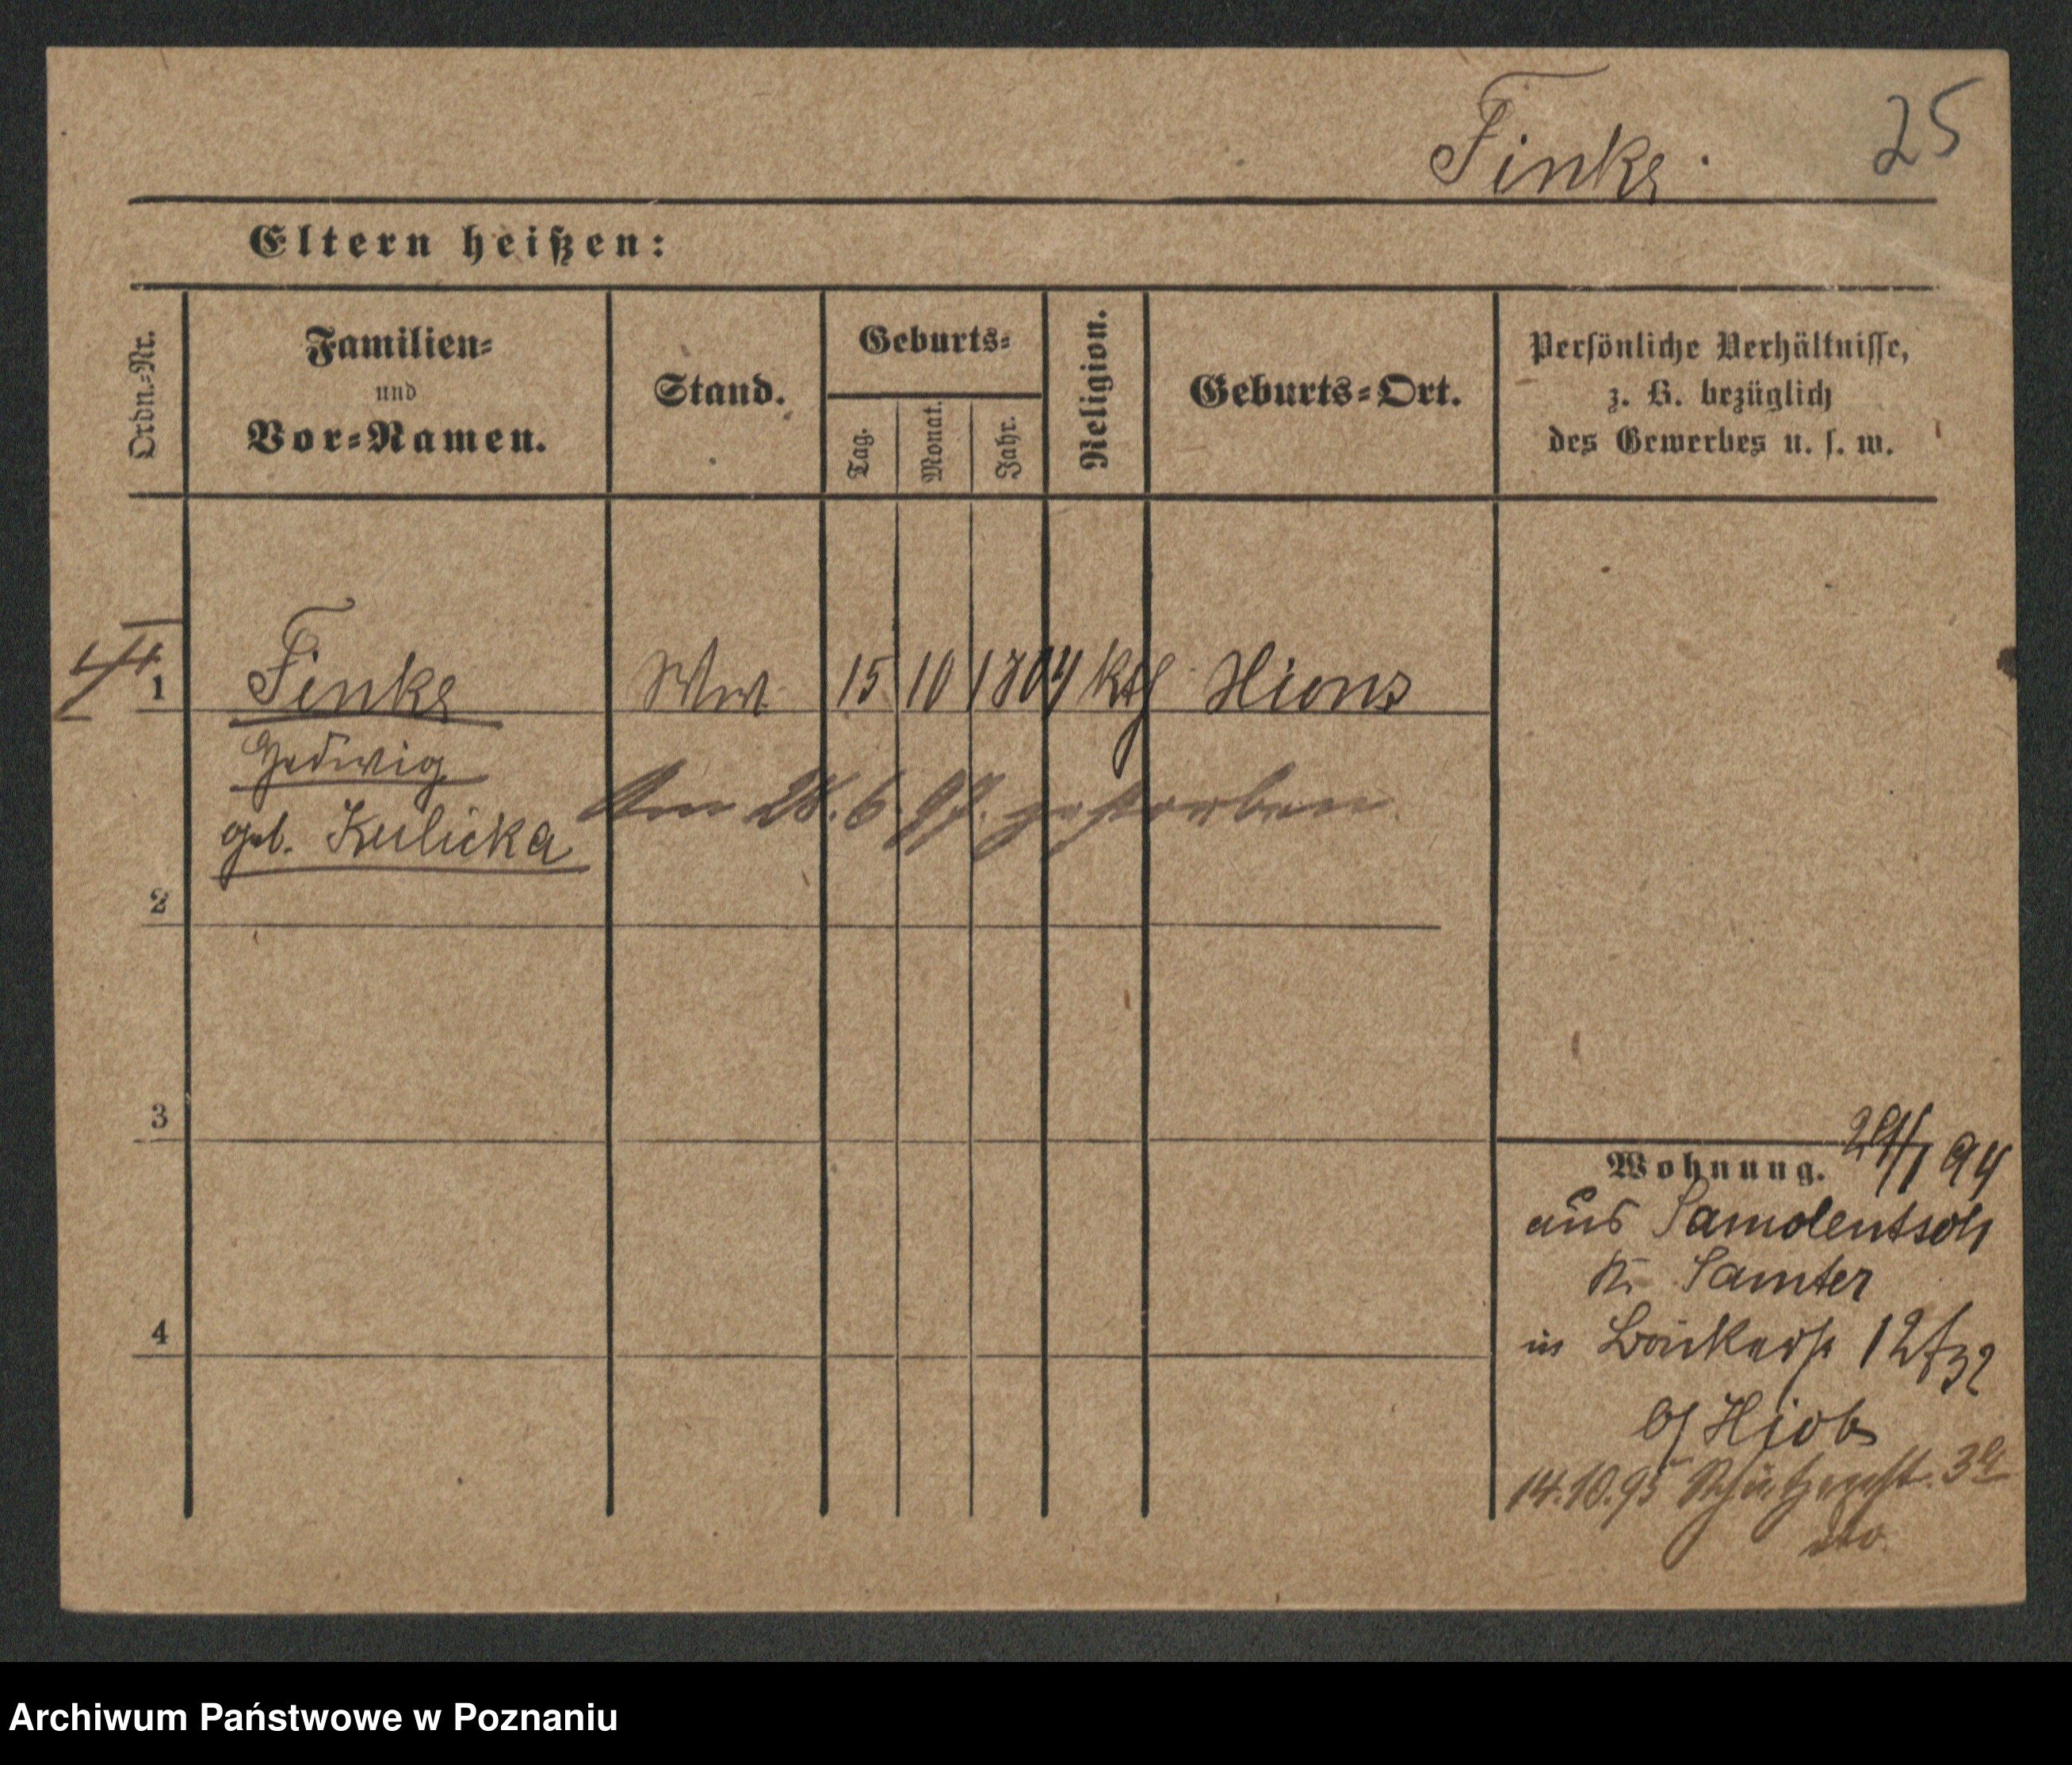 Finke.
25
Eltern heißen:
Ordn.-Nr.
Familien-
und
Vor-Namen.
Stand.
Geburts-
Tag.
Monat.
Jahr.
Religion.
Geburts-Ort.
Persönliche Verhältnisse,
z. B. bezüglich
des Gewerbes u. s. w.
1 Finke Ww. 15 10 1804 kth Xions
Hedwig
geb. Kulicka
Am 28.6.97. gestorben.
2
3
4
Wohnung. 29/1 94
aus Samolentsch
Kr. Samter
in 12
b/ Hiob
14.10.95 Schützenstr. 3a
do.
Archiwum Państwowe w Poznaniu